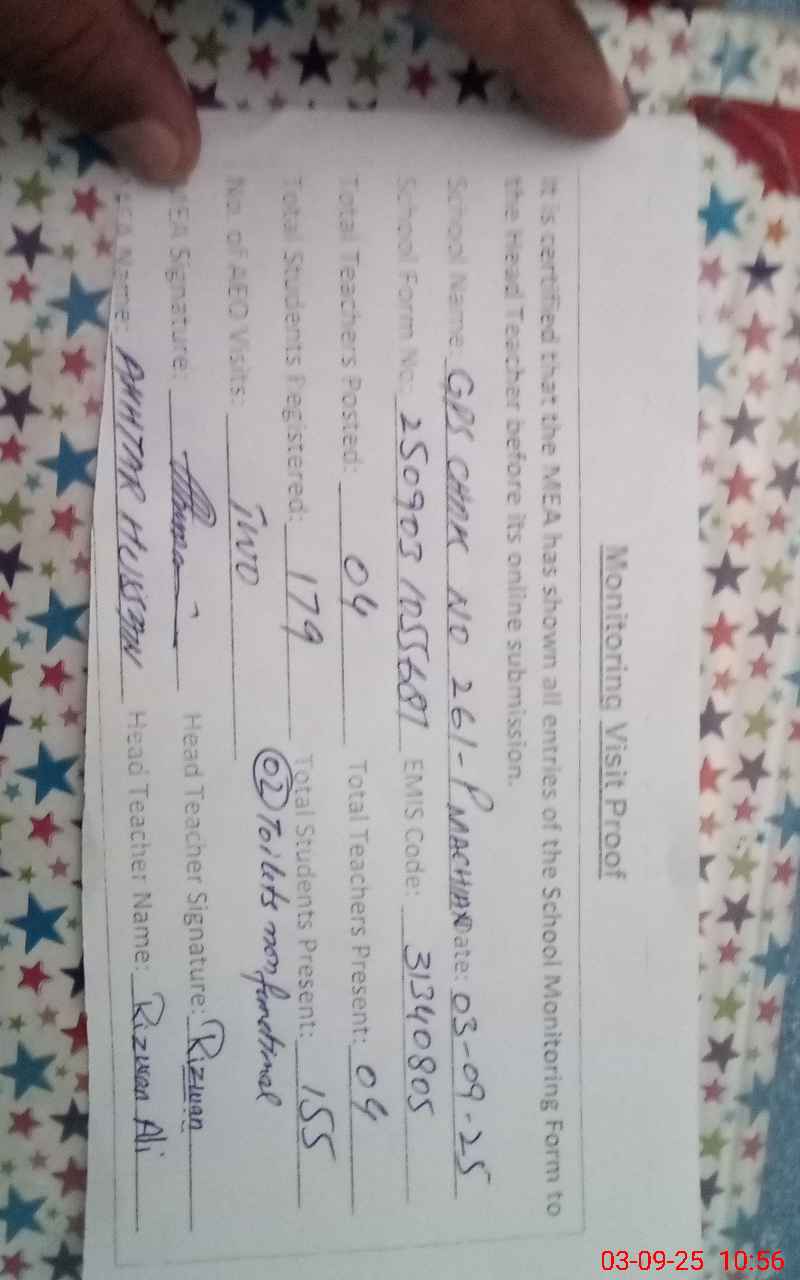 Monitoring Visit Proof
It is certified that the MEA has shown all entries of the School Monitoring Form to
the Head Teacher before its online submission.
School Name: GPS CHAK NO 261-P MACHIAN Date: 03-09-25
School Form No: 250903 1055681 EMIS Code: 31340805
Total Teachers Posted: 04 Total Teachers Present: 04
Total Students Registered: 179 Total Students Present: 155
No. of AEO Visits: Two 02 Toilets non functional
MEA Signature: Head Teacher Signature: Rizwan
MEA Name: HUSSAIN Head Teacher Name: Rizwan Ali
03-09-25 10:56